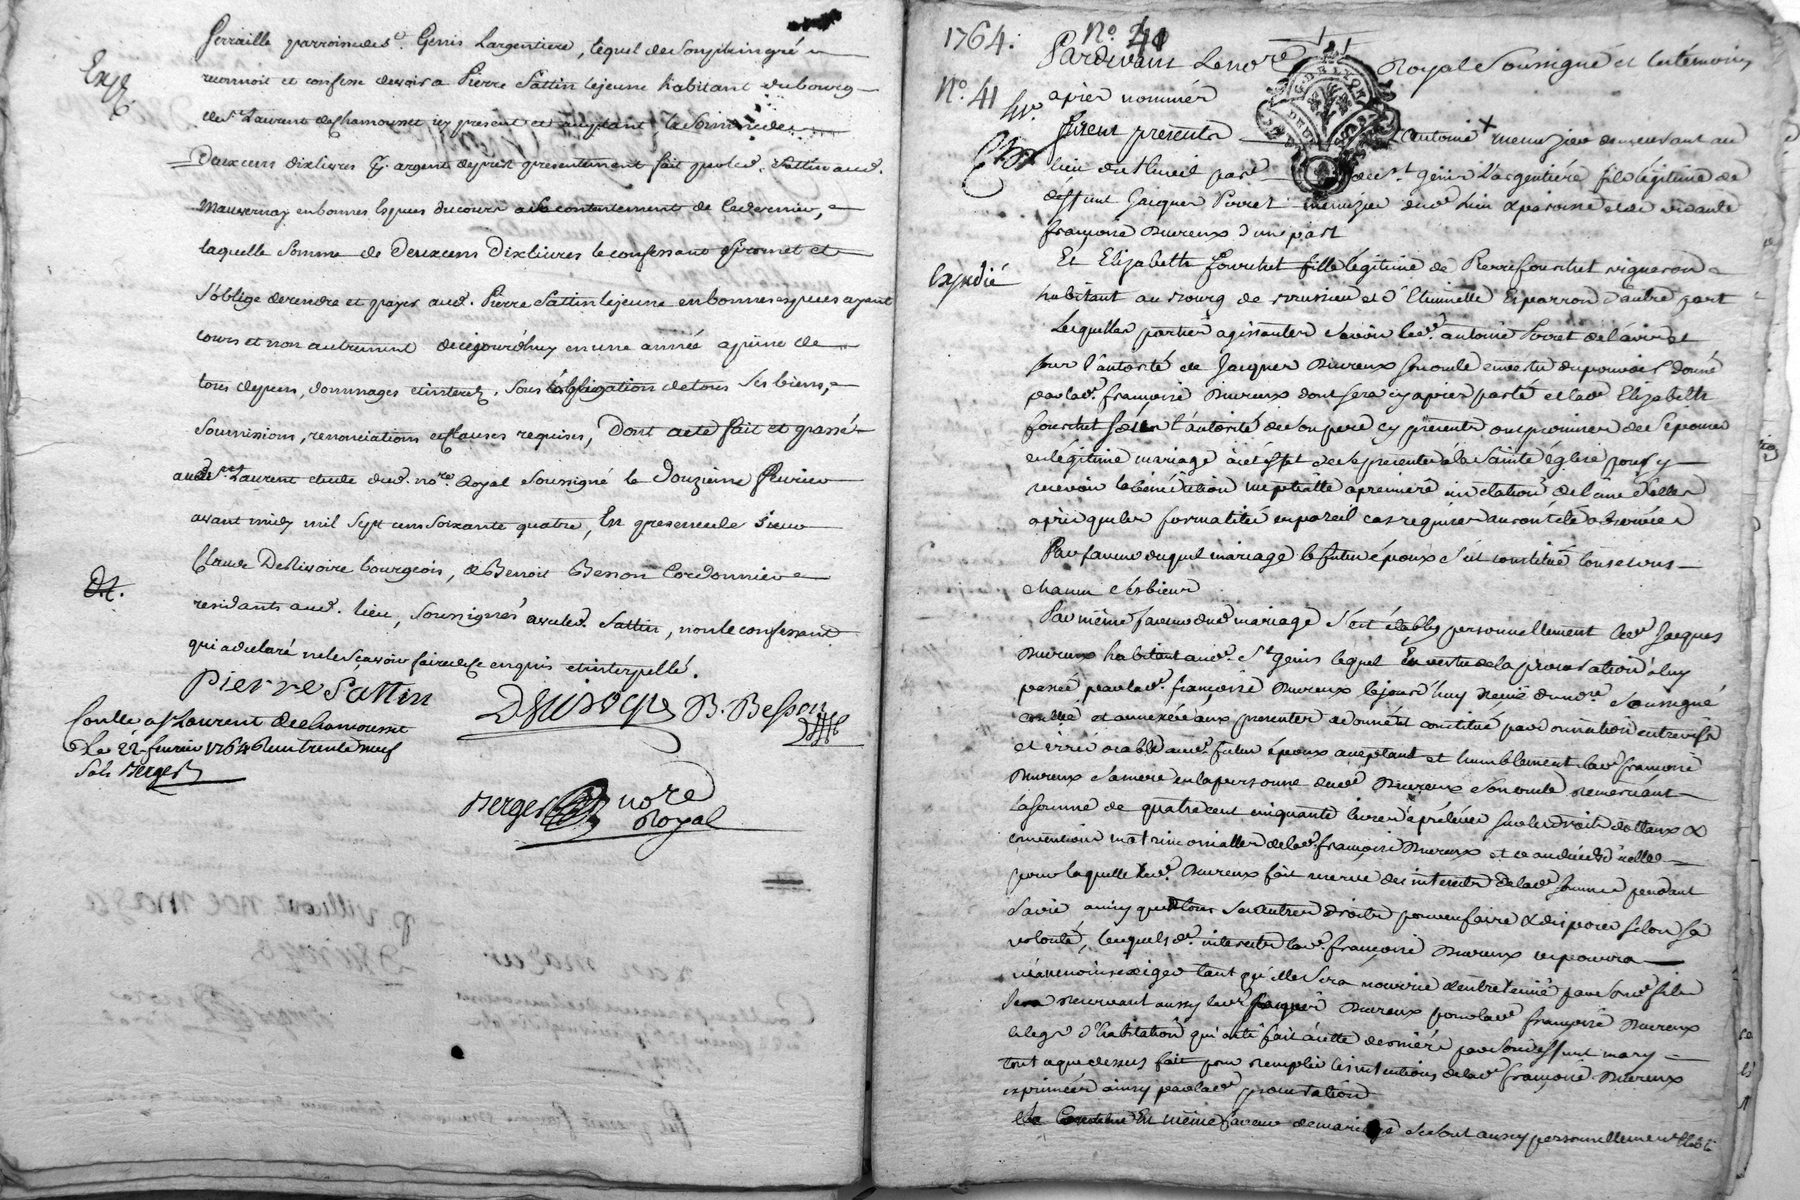 parroisse de St. Genis Largentiere, lequel de son plein gré
reconnoit et confesse devoir a Pierre Sattin le jeune habitant du bourg
Expé
de St Laurent de Chamousset icy present et acceptant la somme de
Deux cens dix livres en argent de prêt presentement fait par led. Sattin aud.
Mauvernay en bonnes Espeçes du cours au contentement de ce dernier,
laquelle somme de Deux cens Dix livres le confessant promet et
s'oblige de rendre et payer aud. Pierre Sattin le jeune en bonnes espeçes ayant
cours et non autrement dicy a jourd'huy en une année a peine de
tous depens, dommages et interets, sous l'obligation de tous ses biens,
soumissions, renonciations et clauses requises, Dont acte fait et passé
aud. St Laurent etude dud. nore. Royal soussigné le Douzieme fevrier
avant midy mil sept cens soixante quatre, En presence de sieur
Claude bourgeois, et Benoit Besson Cordonnier
residants aud. lieu, soussignés avec led. Sattin, non le confessant
qui a declaré ne le sçavoir faire de ce enquis et interpellé.
Pierre Sattin
B. Besson
Conllé a St Laurent de Chamousset
Le 22 fevrier 1764 Reçu trente neuf
sols Berger
Berger nore
Royal
1764. No. 41
No. 41
Pardevant Le nore Royal Soussigné et les témoins
après nommés
furent présents Antoine menuzier demeurant au
lieu du par. de St Genis L'argentière fils légitime de
deffunt Jacques Porret menuzier dud. lieu & paroisse et de vivante
françoise Bureux d'une part
Expédié
Et Elizabeth fourchet fille légitime de Pierre fourchet vigneron
habitant au Bourg de Brussieu et d'Etiennette Esparron d'autre part
Lesquelles parties agissantes sçavoir led. antoine Porret de l'avis et
sous l'autorité de Jacques Bureux son oncle en vertu du pouvoir donné
par lad. françoise Bureux dont sera cy après parlé et lad. Elizabeth
fourchet sous l'autorité de son père cy présent ont promis de s'épouser
en légitime mariage à cet effet de se présenter à la Sainte église pour y
recevoir la bénédiction nuptialle a première de l'une d'elles
après que les formalités en pareil cas requises auront été observées
Par faveur duquel mariage le futur époux s'est constitué tous et uns
chacuns ses biens
Par même faveur dud. mariage s'est établi personnellement led. Jacques
Bureux habitant aud. St Genis lequel En vertu de la procuration à luy
passée par lad. françoise Bureux le jourd'huy reçüe du nore. soussigné
conllé et annexée aux présentes a donné et constitué par donnation entre vifs
et irrévocable aud. futur époux acceptant et humblement lad. françoise
Bureux sa mère en la personne dud. Bureux son oncle remerciant
la somme de quatre cent cinquante livres à prélever sur les droits dottaux &
conventions matrimonialles de lad. françoise Bureux
pour laquelle led. Bureux fait reserve des interests de lad. somme pendant
sa vie ainsy que de tous ses autres droits pour en faire & disposer selon sa
volonté, lesquels d. interests lad. françoise Bureux ne pourra
néanmoins exiger tant qu'elle sera nourrie & entretenüe par sond. fils
se reservant aussy led. Jacques Bureux pour lad. françoise Bureux
le legs d'habitation qui a été fait à cette dernière par son deffunt mary
tout ce que dessus fait pour remplir les intentions de lad. françoise Bureux
exprimées ainsy par lad. procuration
En même faveur de mariage se sont aussy personnellement établi